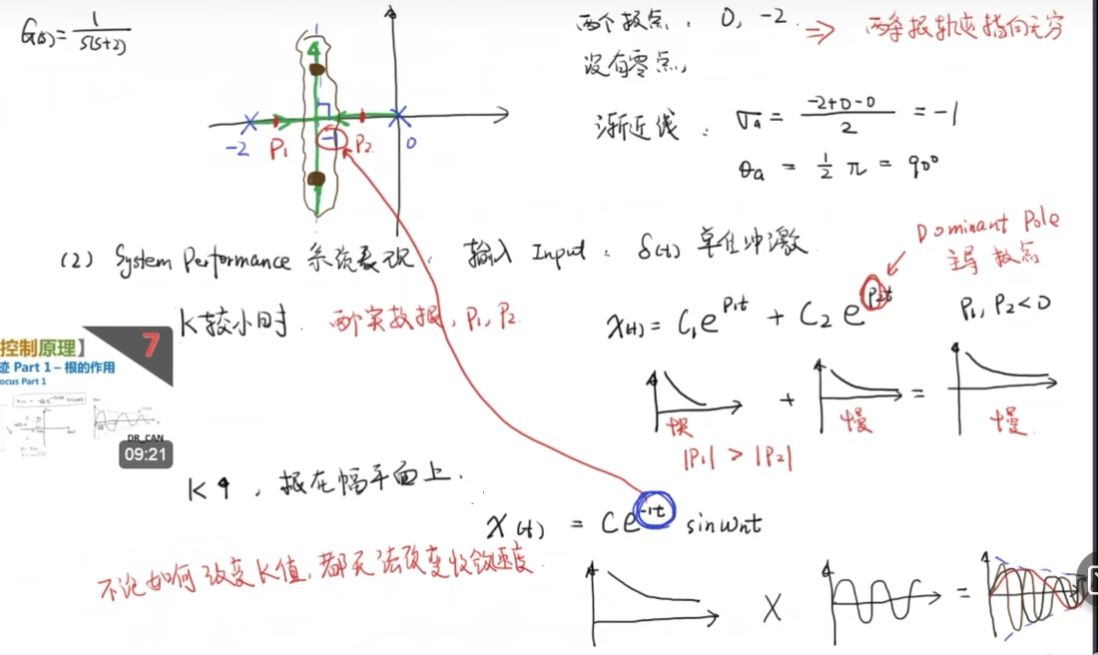 G(s) = 1/s(s+2)
两个极点： 0, -2. ⇒ 两条根轨迹指向无穷
没有零点,
渐近线： σa = (-2+0-0)/2 = -1
θa = 1/2 π = 90°
-2 P1 -1 P2 0
(2) System Performance 系统表现. 输入 Input: δ(t) 单位冲激
Dominant Pole
主导极点
K较小时. 两个实数根, P1, P2
x(t) = C1e^{P1t} + C2e^{P2t} P1, P2<0
快 + 慢 = 慢
|P1| > |P2|
控制原理】 7
迹 Part 1 – 根的作用
ocus Part 1
DR_CAN
09:21
K↑, 根在幅平面上.
x(t) = Ce^{-1t} sinωnt
不论如何改变K值, 都无法改变收敛速度
X =